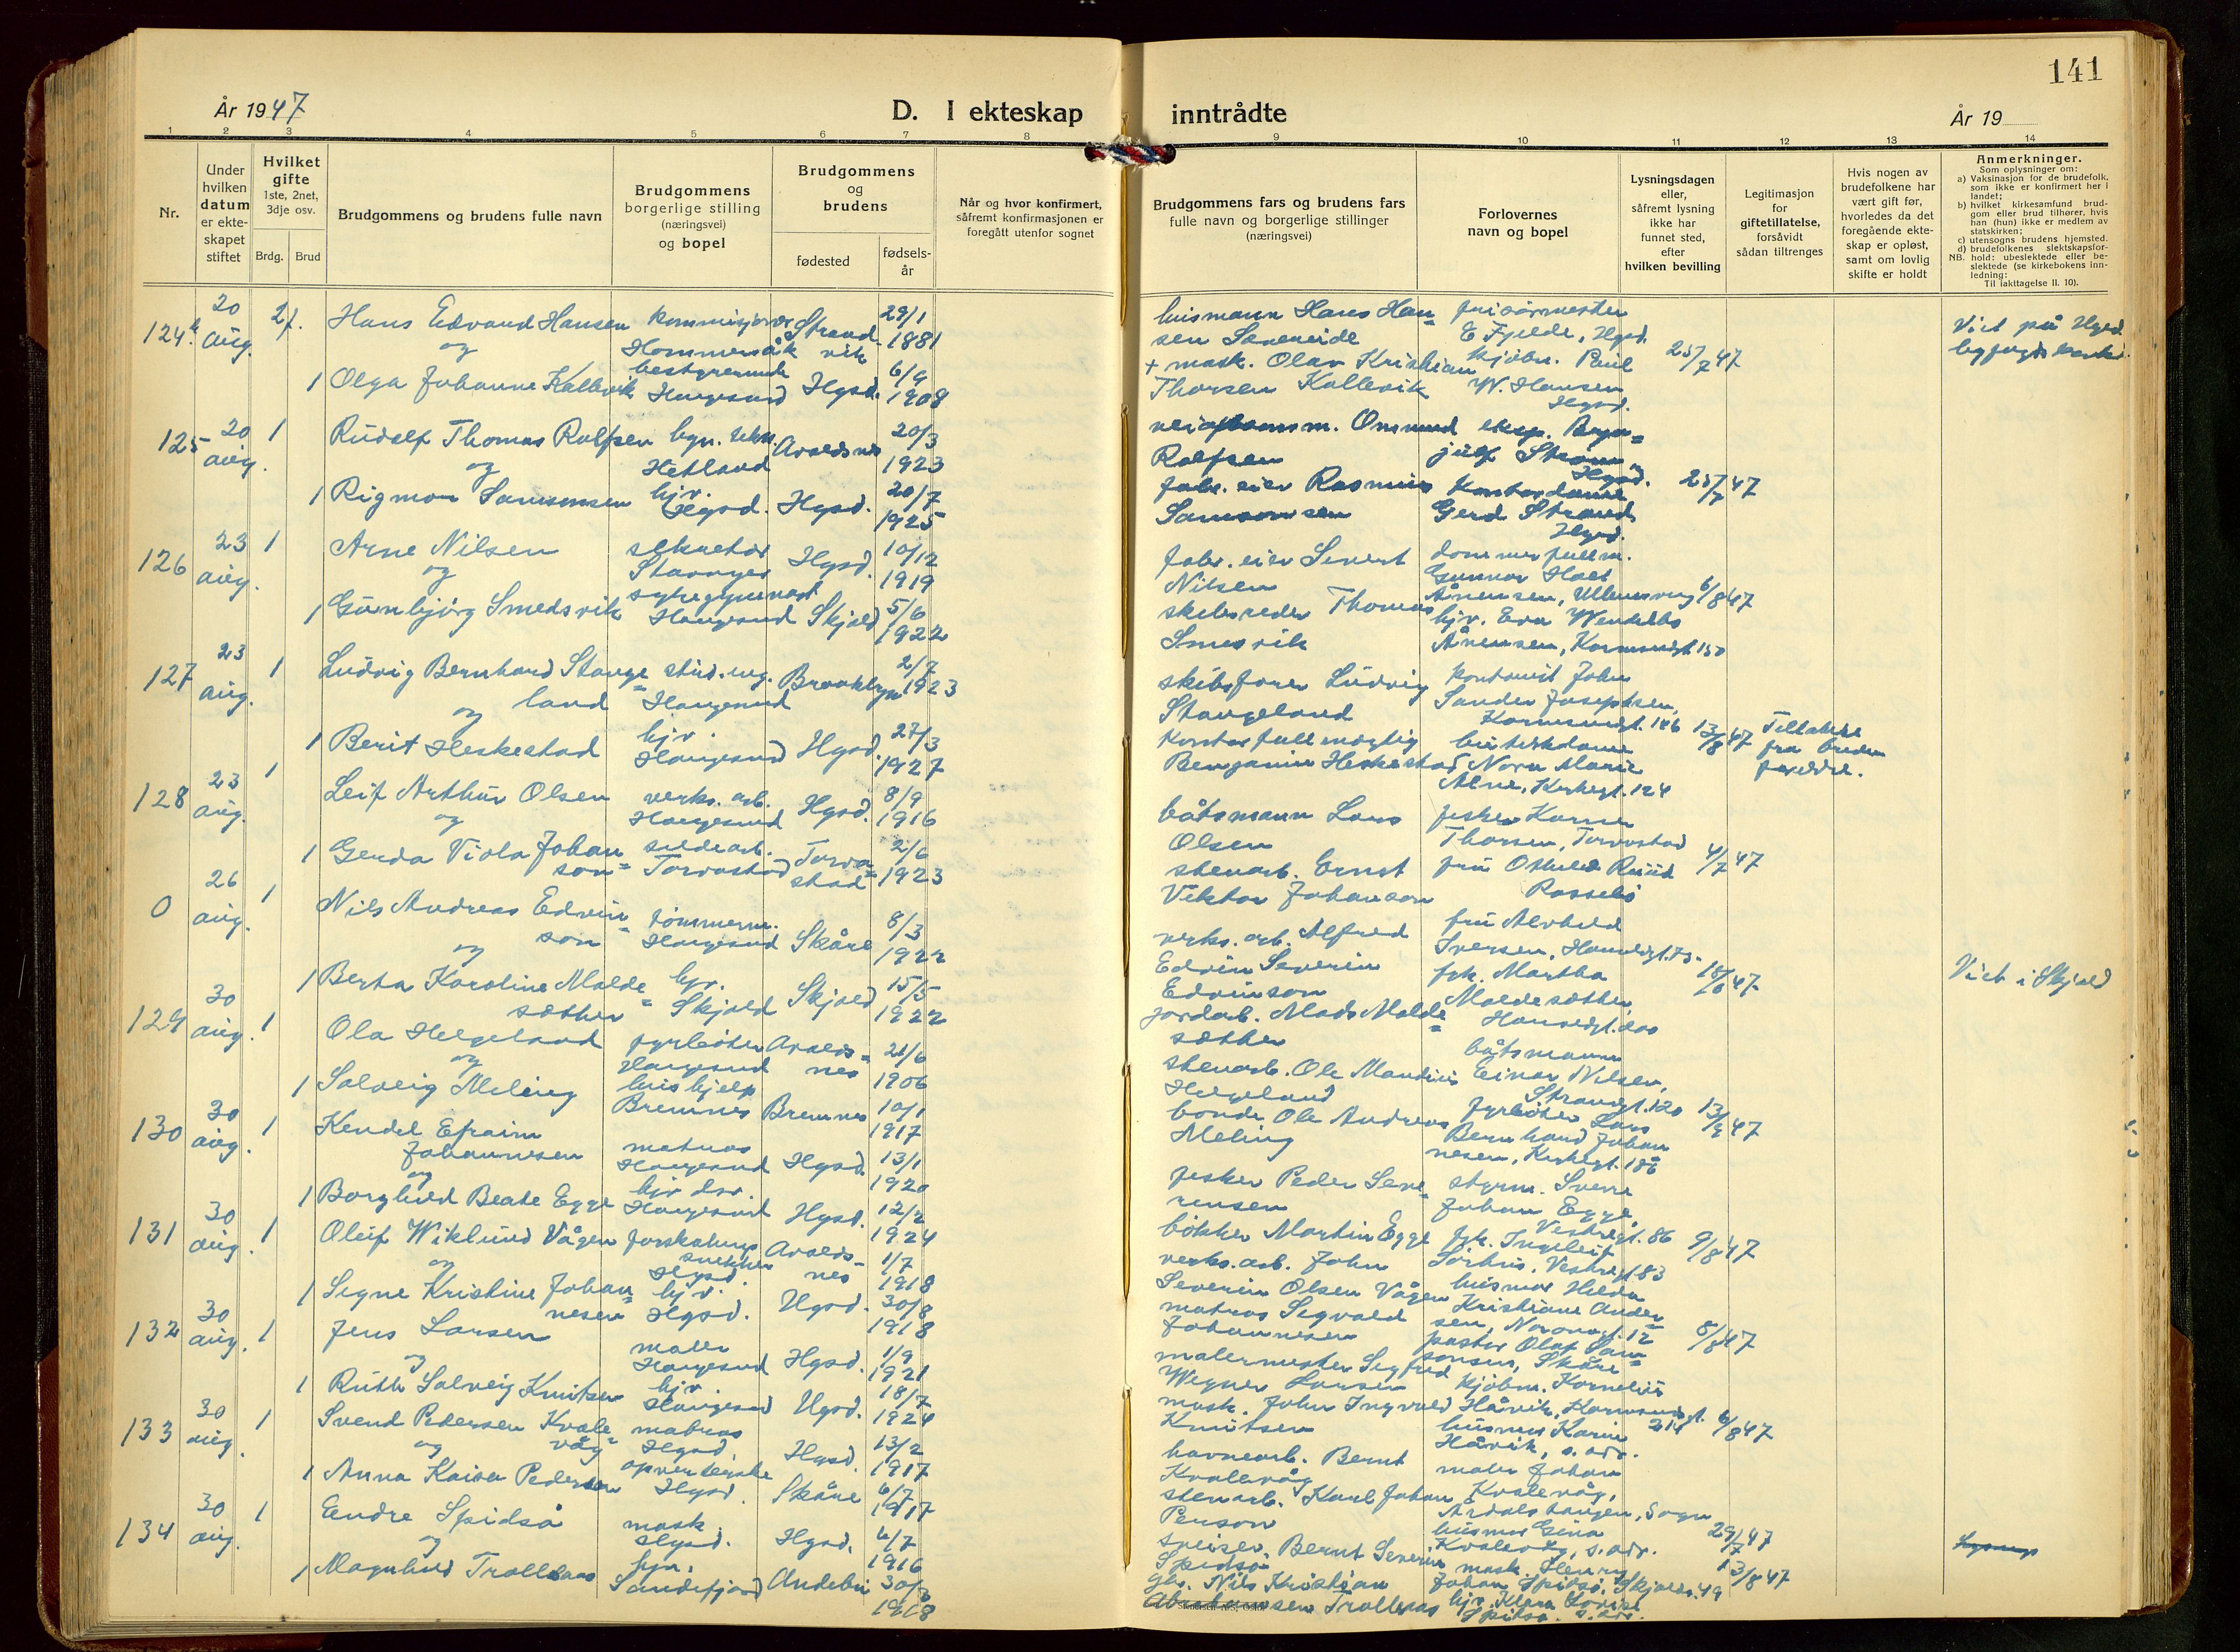 141
År 1947
D. I ekteskap inntrådte
År 19
1 2 3 4 5 6 7 8 9 10 11 12 13 14
Nr.
Under
hvilken
datum
er ekte-
skapet
stiftet
Hvilket
gifte
1ste, 2net,
3dje osv.
Brdg. Brud
Brudgommens og brudens fulle navn
Brudgommens
borgerlige stilling
(næringsvei)
og bopel
Brudgommens
og
brudens
fødested
fødsels-
år
Når og hvor konfirmert,
såfremt konfirmasjonen er
foregått utenfor sognet
Brudgommens fars og brudens fars
fulle navn og borgerlige stillinger
(næringsvei)
Forlovernes
navn og bopel
Lysningsdagen
eller,
såfremt lysning
ikke har
funnet sted,
efter
hvilken bevilling
Legitimasjon
for
giftetillatelse,
forsåvidt
sådan tiltrenges
Hvis nogen av
brudefolkene har
vært gift før,
hvorledes da det
foregående ekte-
skap er opløst,
samt om lovlig
skifte er holdt
Anmerkninger.
Som oplysninger om:
a) Vaksinasjon for de brudefolk,
som ikke er konfirmert her i
landet;
b) hvilket kirkesamfund brud-
gom eller brud tilhører, hvis
han (hun) ikke er medlem av
statskirken;
c) utensogns brudens hjemsted.
d) brudefolkenes slektskapsfor-
NB. hold: ubeslektede eller be-
slektede (se kirkebokens inn-
ledning:
Til iakttagelse II. 10).
124
20
aug.
2
Hans Edvard Hansen
og
1 Olga Johanne Kallevik
Hommersåk
bestyrerinde
Haugesund
Strand
vik
Hgsd.
29/1
1881
6/9
1908
husmann Hans Han=
sen
+ mask. Olav Kristian
Thorsen Kallevik
frisørmester
E. Fjelde, Hgsd.
kjøbm. Paul
W. Hansen
Hgsd.
25/7 47
Viet på Hgsd.
125
20
aug.
1
Rudolf Thomas Rolfsen
og
1 Rigmor Samsonsen
Hetland
hjv.
Hgsd.
Avaldsnes
Hgsd.
20/3
1923
20/7
1925
Ommund
Rolfsen
fabr. eier Rasmus
Samsonsen
eksp. Bryn=
julf Strøm
Hgsd.
Kontordame
Gerd Strand
Hgsd.
25/7 47
126
23
aug.
1
Arne Nilsen
og
1 Gunbjørg Smedsvik
sekretær
Stavanger
Haugesund
Hgsd.
Skjold
10/12
1919
5/6
1922
fabr. eier Severt
Nilsen
skibsreder Thomas
Smedsvik
dommerfullm.
Gunnar Hoet
Årensen, Ullensvang
hjv. Eva Wendelbo
Årensen, Karmsundgt. 150
6/8 47
127
23
aug.
1
Ludvig Bernhard Stange=
land
og
1 Berit Heskestad
stud. ing.
Haugesund
hjv.
Haugesund
Brooklyn
Hgsd.
2/7
1923
27/3
1927
skibsfører Ludvig
Stangeland
Kontorfullmægtig
Benjamin Heskestad
kontorist John
Sander Josephsen,
Karmsundgt. 186
butikkdame
Nora Marie
Alne, Kirkegt. 124
13/8 47
Tillatelse
fra brudens
foreldre.
128
23
aug.
1
Leif Arthur Olsen
og
1 Gerda Viola Johan=
son
verks. arb.
Haugesund
sildearb.
Torvastad
Hgsd.
Torva=
stad
8/9
1916
2/6
1923
båtsmann Lars
Olsen
stenarb. Ernst
Viktor Johanson
fisker Karner
Thorsen, Torvastad
fru Othilie Ruud
Røsselø
4/7 47
0
26
aug.
1
Nils Andreas Edvin=
son
og
1 Berta Karoline Molde=
sæther
tømmerm.
Haugesund
hjv.
Skjold
Skåre
Skjold
8/3
1922
15/5
1922
verks. arb. Alfred
Edvin Severin
Edvinson
jordarb. Mads Molde=
sæther
fru Alvhild
Iversen,
frk. Martha
Moldesæther
18/8 47
Viet i Skjold
129
30
aug.
1
Ola Helgeland
og
1 Solveig Meling
fyrbøter
Haugesund
hushjelp
Bremnes
Avalds=
nes
Bremnes
21/6
1906
10/1
1917
stenarb. Ole Mandius
Helgeland
bonde Ole Andreas
Meling
båtsmann
Einar Nilsen,
Strandgt. 120
fyrbøter Lars
Bernhard Johan
nesen, Kirkegt. 186
130
30
aug.
1
Kendel Efraim
Johannesen
og
1 Borghild Beate Egge
matros
Haugesund
hjv. dør.
Haugesund
Hgsd.
Hgsd.
13/1
1920
12/2
1924
fisker Peder Seve=
rinsen
bøkker Martin Egge
styrm. Sverre
Johan Egge,
Vestregt. 86
frk. Ingeleif
Sørhus, Vestregt. 83
9/8 47
131
30
aug.
1
Oluf Wiklund Vågen
og
1 Signe Kristine Johan=
nesen
forskalings
snekker
Hgsd.
hjv.
Hgsd.
Avalds=
nes
Hgsd.
1/7
1918
30/8
1918
verks. arb. John
Severin Olsen Vågen
matros Sigvald
Johannesen
husmor Hilda
Kristiane Ander=
sen, Nordnagt. 12
pastor Olaf Sam=
sonsen, Skåre
8/8 47
132
30
aug.
1
Jens Larsen
og
1 Ruth Solveig Knutsen
maler
Haugesund
hjv.
Haugesund
Hgsd.
Hgsd.
1/9
1921
18/7
1924
malermester Sigfred
Wegner Larsen
mask. John Ingvald
Knutsen
kjøbm. Kornelius
Håvik, Karmsundgt.
husmor Karin
Håvik, s. adr.
6/8 47
133
30
aug.
1
Svend Pedersen Kvale=
våg
og
1 Anna Kaisa Pedersen
matros
Hgsd.
opvarterske
Hgsd.
Hgsd.
Skåre
13/2
1917
6/7
1917
havnearb. Bernt
Kvalevåg
stenarb. Karl Johan
Person
maler Johan
Kvalevåg,
Årdalstangen, Sogn
husmor Gina
Kvalevåg, s. adr.
29/7 47
134
30
aug.
1
Endre Spidsø
og
1 Magnhild Trollsaas
mask.
Hgsd.
hjv.
Sandefjord
Hgsd.
Andebu
6/7
1916
30/3
1918
Bernt Severin
Spidsø
Nils Kristian
Abrahamsen Trollsaas
mask. Henry
Johan Spidsø, Skjoldv. 49
hjv. Klara Lovise
Spidsø. s. adr.
13/8 47